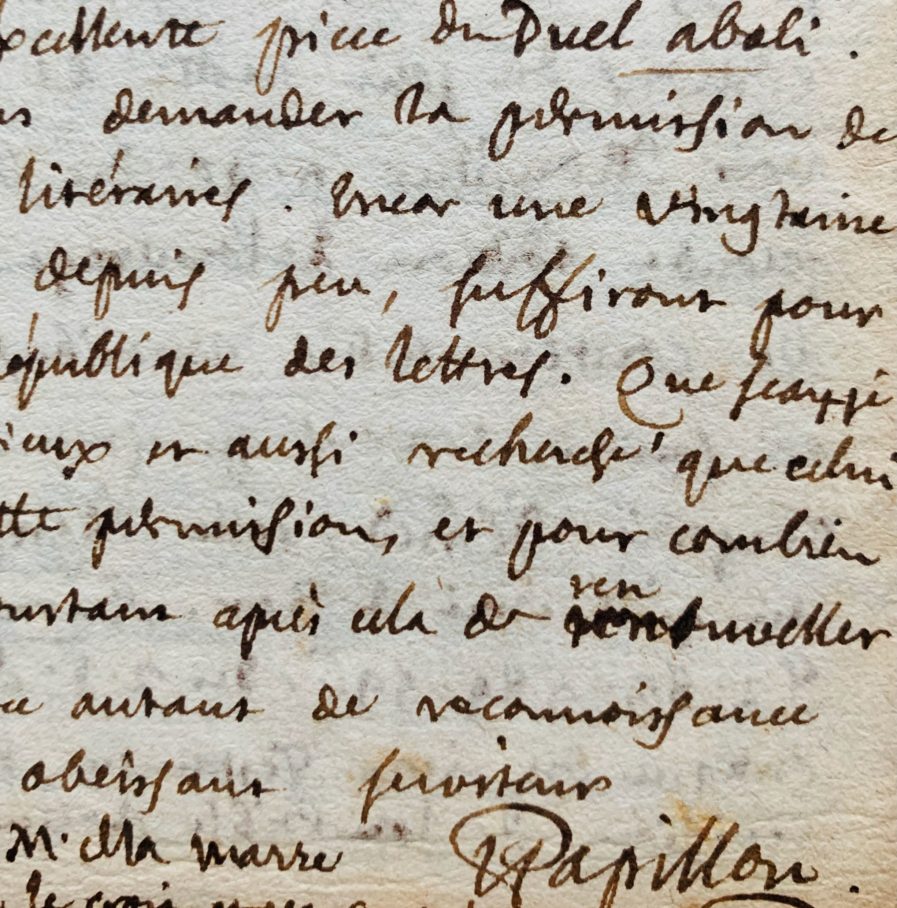 xcellente piece du Duel aboli.
ns demander la permission de
litéraires. Encor une vingtaine
depuis peu, suffiront pour
république des lettres. Que sçay je
ieux et aussi recherché que celui
tte permission, et pour combien
instant après cela de ren nuveller
ec autant de reconnoissance
obeissant serviteur
M. de la marre Papillon.
je crois